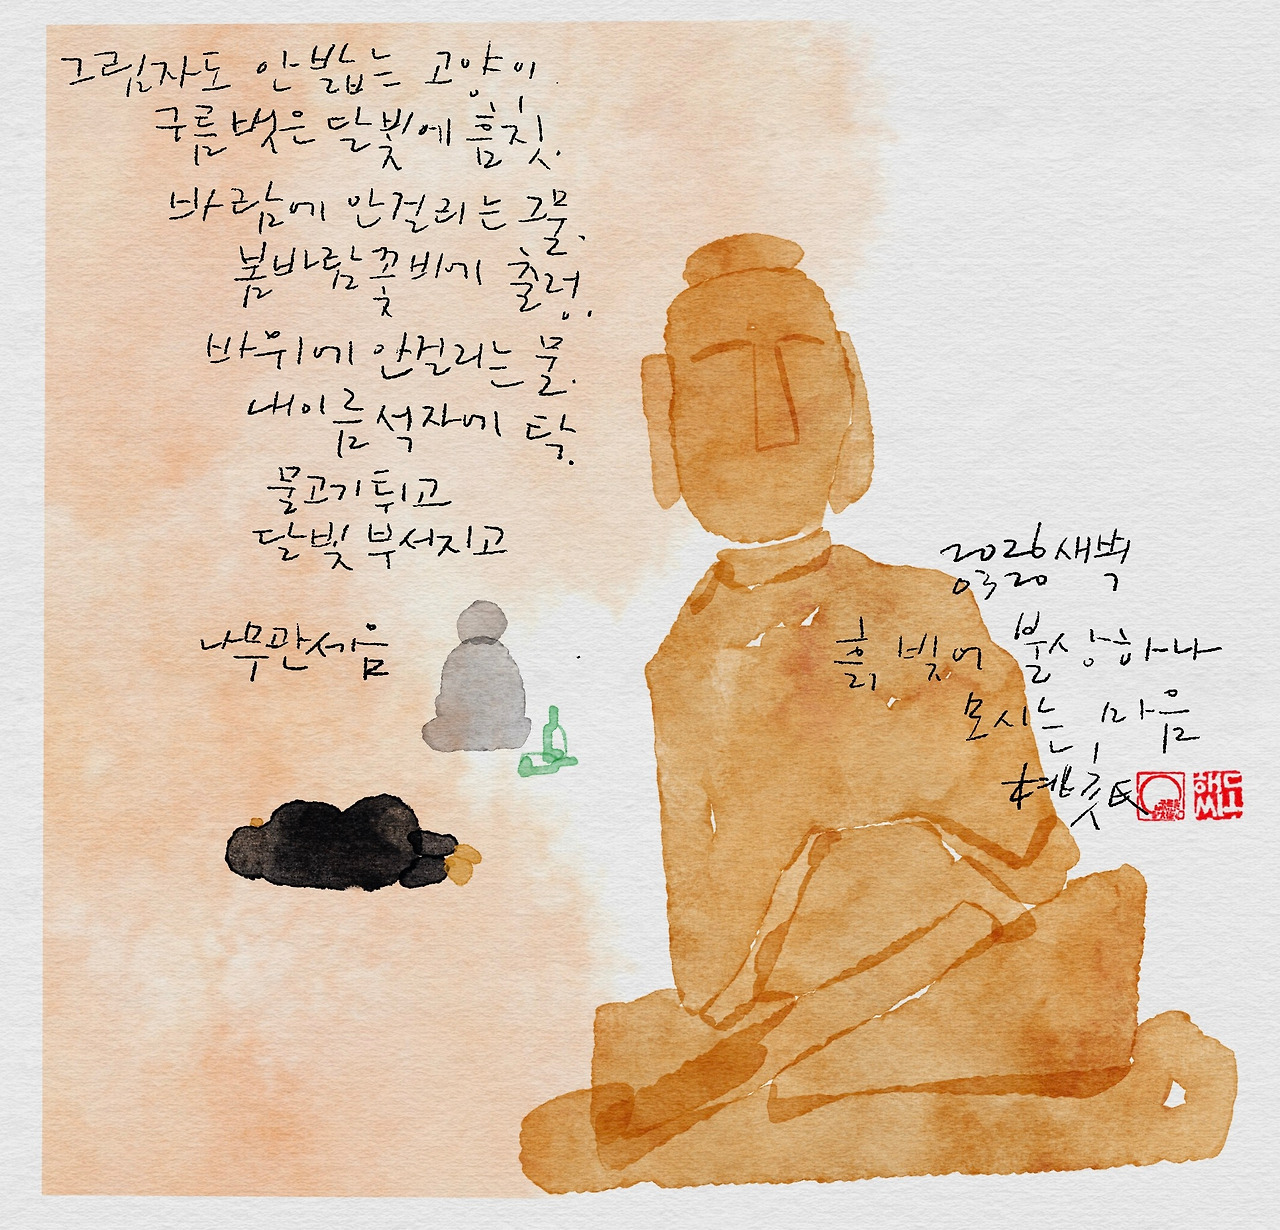 그림자도 안 밟는 고양이.
구름 벗은 달빛에 흠칫.
바람에 안걸리는 그물.
봄바람 꽃비에 출렁.
바위에 안걸리는 물.
내이름 석자에 탁.
물고기 튀고
달빛 부서지고
나무관세음
2026 새벽
0320
흙 빚어 불상하나
모시는 마음